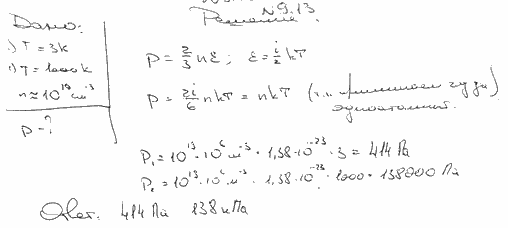 №9.13
Дано: Решение.
1) T = 3K
2) T = 1000K
n ≈ 10¹⁹ см⁻³
P - ?
P = 2/3 nε; ε = i/2 kT
P = 2i/6 nkT = nkT (т.к. принимаем газ за одноатомный.)
P₁ = 10¹⁹ · 10⁶ м⁻³ · 1,38 · 10⁻²³ · 3 = 414 Па
P₂ = 10¹⁹ · 10⁶ м⁻³ · 1,38 · 10⁻²³ · 1000 = 138000 Па
Ответ: 414 Па 138 кПа